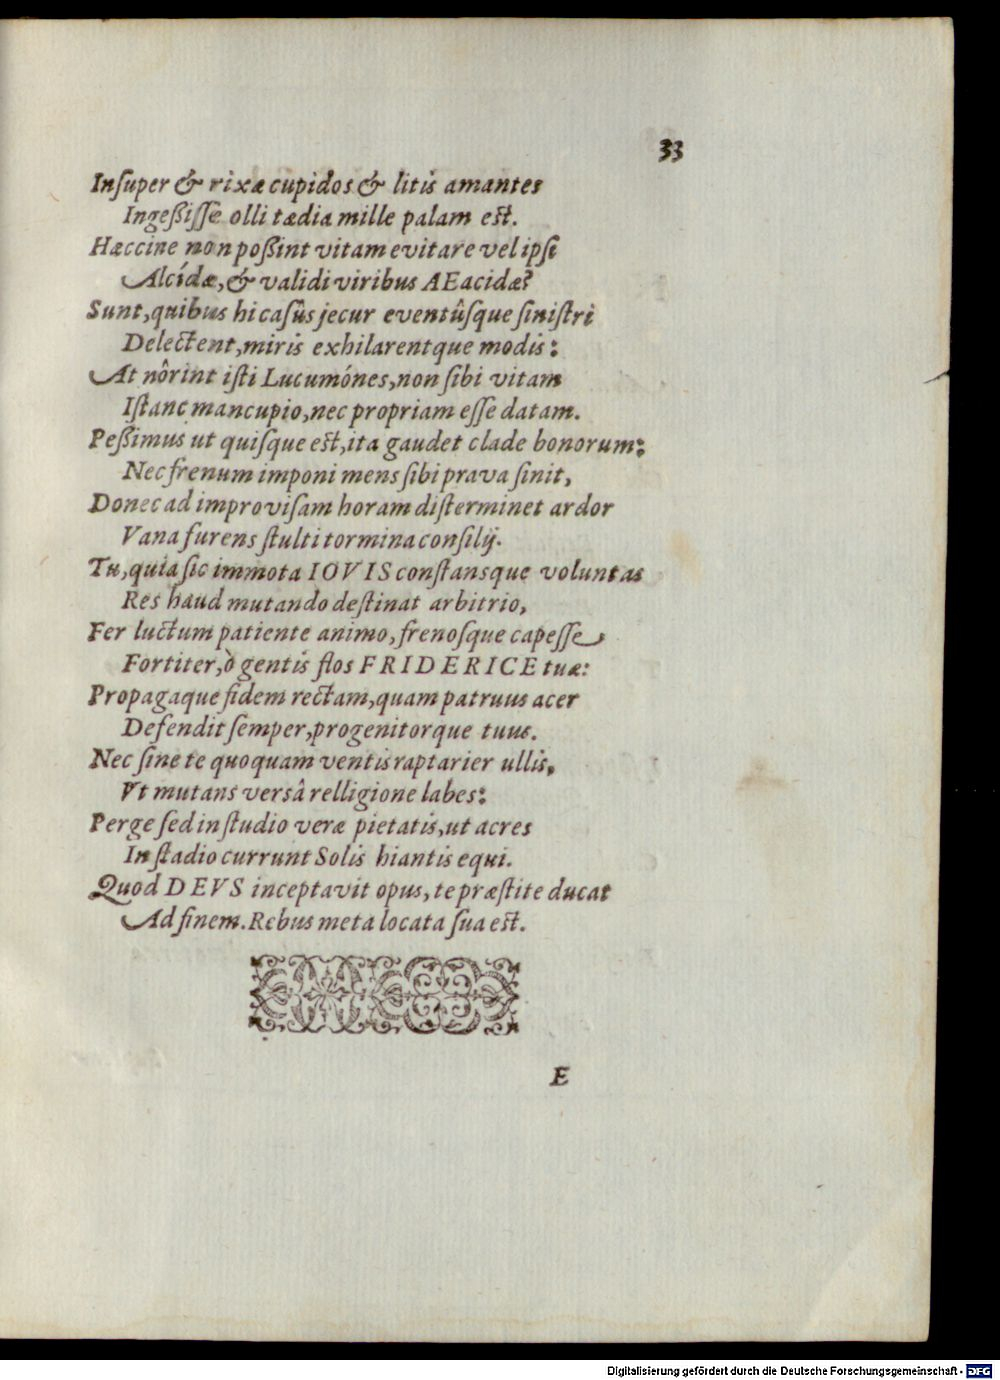 33
Inſuper & rixæ cupidos & litis amantes
Ingeßiſſe olli tædia mille palam est.
Hæccine non poßint vitam evitare vel ipſe
Alcídæ, & validi viribus AEacidæ?
Sunt, quibus hi caſûs jecur eventûſque ſiniſtri
Delectent, miris exhilarentque modis:
At nôrint iſti Lucumónes, non ſibi vitam
Iſtanc mancupio, nec propriam eſſe datam.
Peßimus ut quiſque est, ita gaudet clade bonorum:
Nec frenum imponi mens ſibi prava ſinit,
Donec ad improviſam horam diſterminet ardor
Vana furens ſtulti tormina conſilij.
Tu, quia ſic immota IOVIS conſtansque voluntas
Res haud mutando deſtinat arbitrio,
Fer luctum patiente animo, frenoſque capeſſe
Fortiter, ò gentis flos FRIDERICE tuæ:
Propagaque fidem rectam, quam patruus acer
Defendit ſemper, progenitorque tuus.
Nec ſine te quoquam ventis raptarier ullis,
Vt mutans versâ relligione labes:
Perge ſed in ſtudio veræ pietatis, ut acres
In ſtadio currunt Solis hiantis equi.
Quod DEVS inceptavit opus, te præſtite ducat
Ad finem. Rebus meta locata ſua est.
E
Digitalisierung gefördert durch die Deutsche Forschungsgemeinschaft - DFG